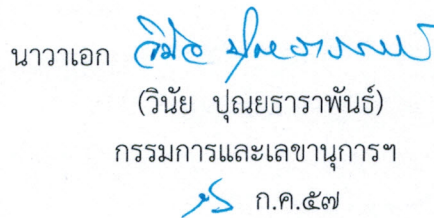 นาวาเอก
(วินัย ปุณยธาราพันธ์)
กรรมการและเลขานุการฯ
ก.ค.๕๗